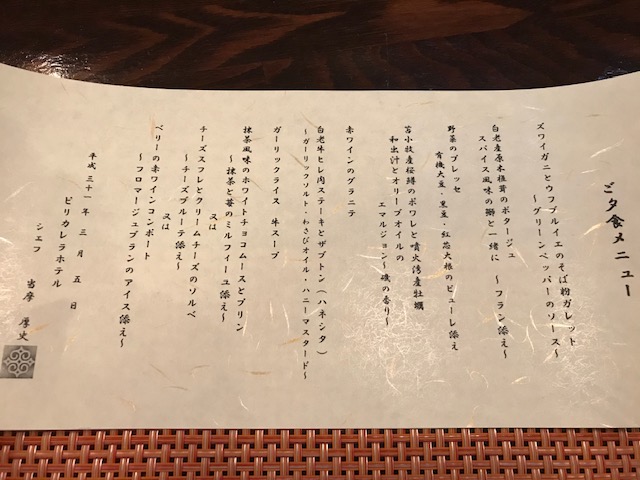 ご夕食メニュー
ズワイガニとウフブルイエのそば粉ガレット
～グリーンペッパーのソース～
白老産原木椎茸のポタージュ
スパイス風味の獅と一緒に ～フラン添え～
野菜のプレッセ
有機大豆・黒豆・紅芯大根のピューレ添え
苫小牧産桜鱒のポワレと噴火湾産牡蠣
和出汁とオリーブオイルの
エマルジョン～磯の香り～
赤ワインのグラニテ
白老牛ヒレ肉ステーキとザブトン（ハネシタ）
～ガーリックソルト・わさびオイル・ハニーマスタード～
ガーリックライス 牛スープ
抹茶風味のホワイトチョコムースとプリン
～抹茶と苺のミルフィーユ添え～
又は
チーズスフレとクリームチーズのソルベ
～チーズブルーテ添え～
又は
ベリーの赤ワインコンポート
～フロマージュブランのアイス添え～
平成 三十一 年 三 月 五 日
ピリカレラホテル
シェフ 當摩 厚史